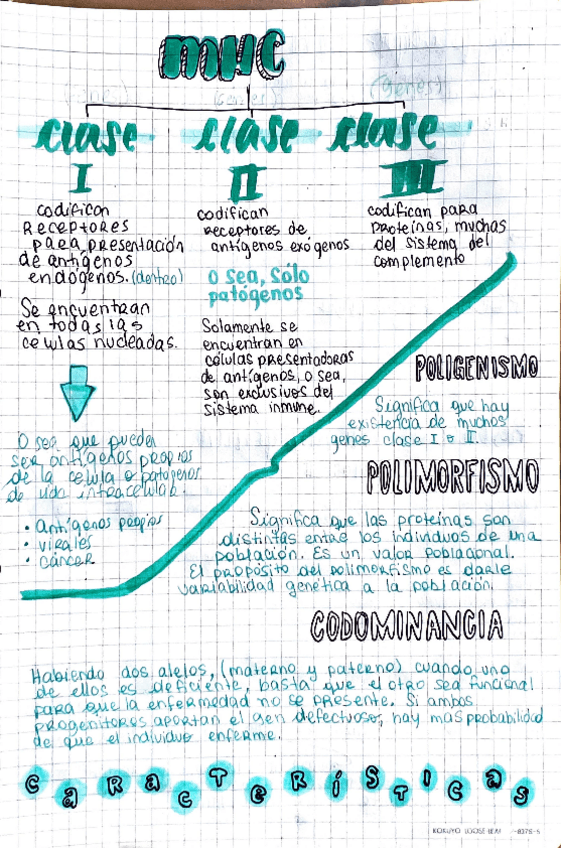 MHC
(genes)
(genes)
(genes)
clase
I
codifican
Receptores
para presentación
de antígenos
endógenos. (dentro)
Se encuentran
en todas las
celulas nucleadas.
O sea que pueden
ser antígenos propios
de la celula o patógenos
de vida intracelular.
• Antígenos propios
• virales
• cáncer
clase
II
codifican
receptores de
antígenos exógenos
o sea, sólo
patógenos
Solamente se
encuentran en
células presentadoras
de antígenos, o sea,
son exclusivos del
sistema inmune.
clase
III
codifican para
proteínas, muchas
del sistema del
complemento
POLIGENISMO
Significa que hay
existencia de muchos
genes clase I o II.
POLIMORFISMO
Significa que las proteínas son
distintas entre los individuos de una
población. Es un valor poblacional.
El propósito del polimorfismo es darle
variabilidad genética a la población.
CODOMINANCIA
Habiendo dos alelos, (materno y paterno) cuando uno
de ellos es deficiente, basta que el otro sea funcional
para que la enfermedad no se presente. Si ambos
progenitores aportan el gen defectuoso, hay mas probabilidad
de que el individuo enferme.
CARACTERÍSTICAS
KOKUYO LOOSE-LEAF